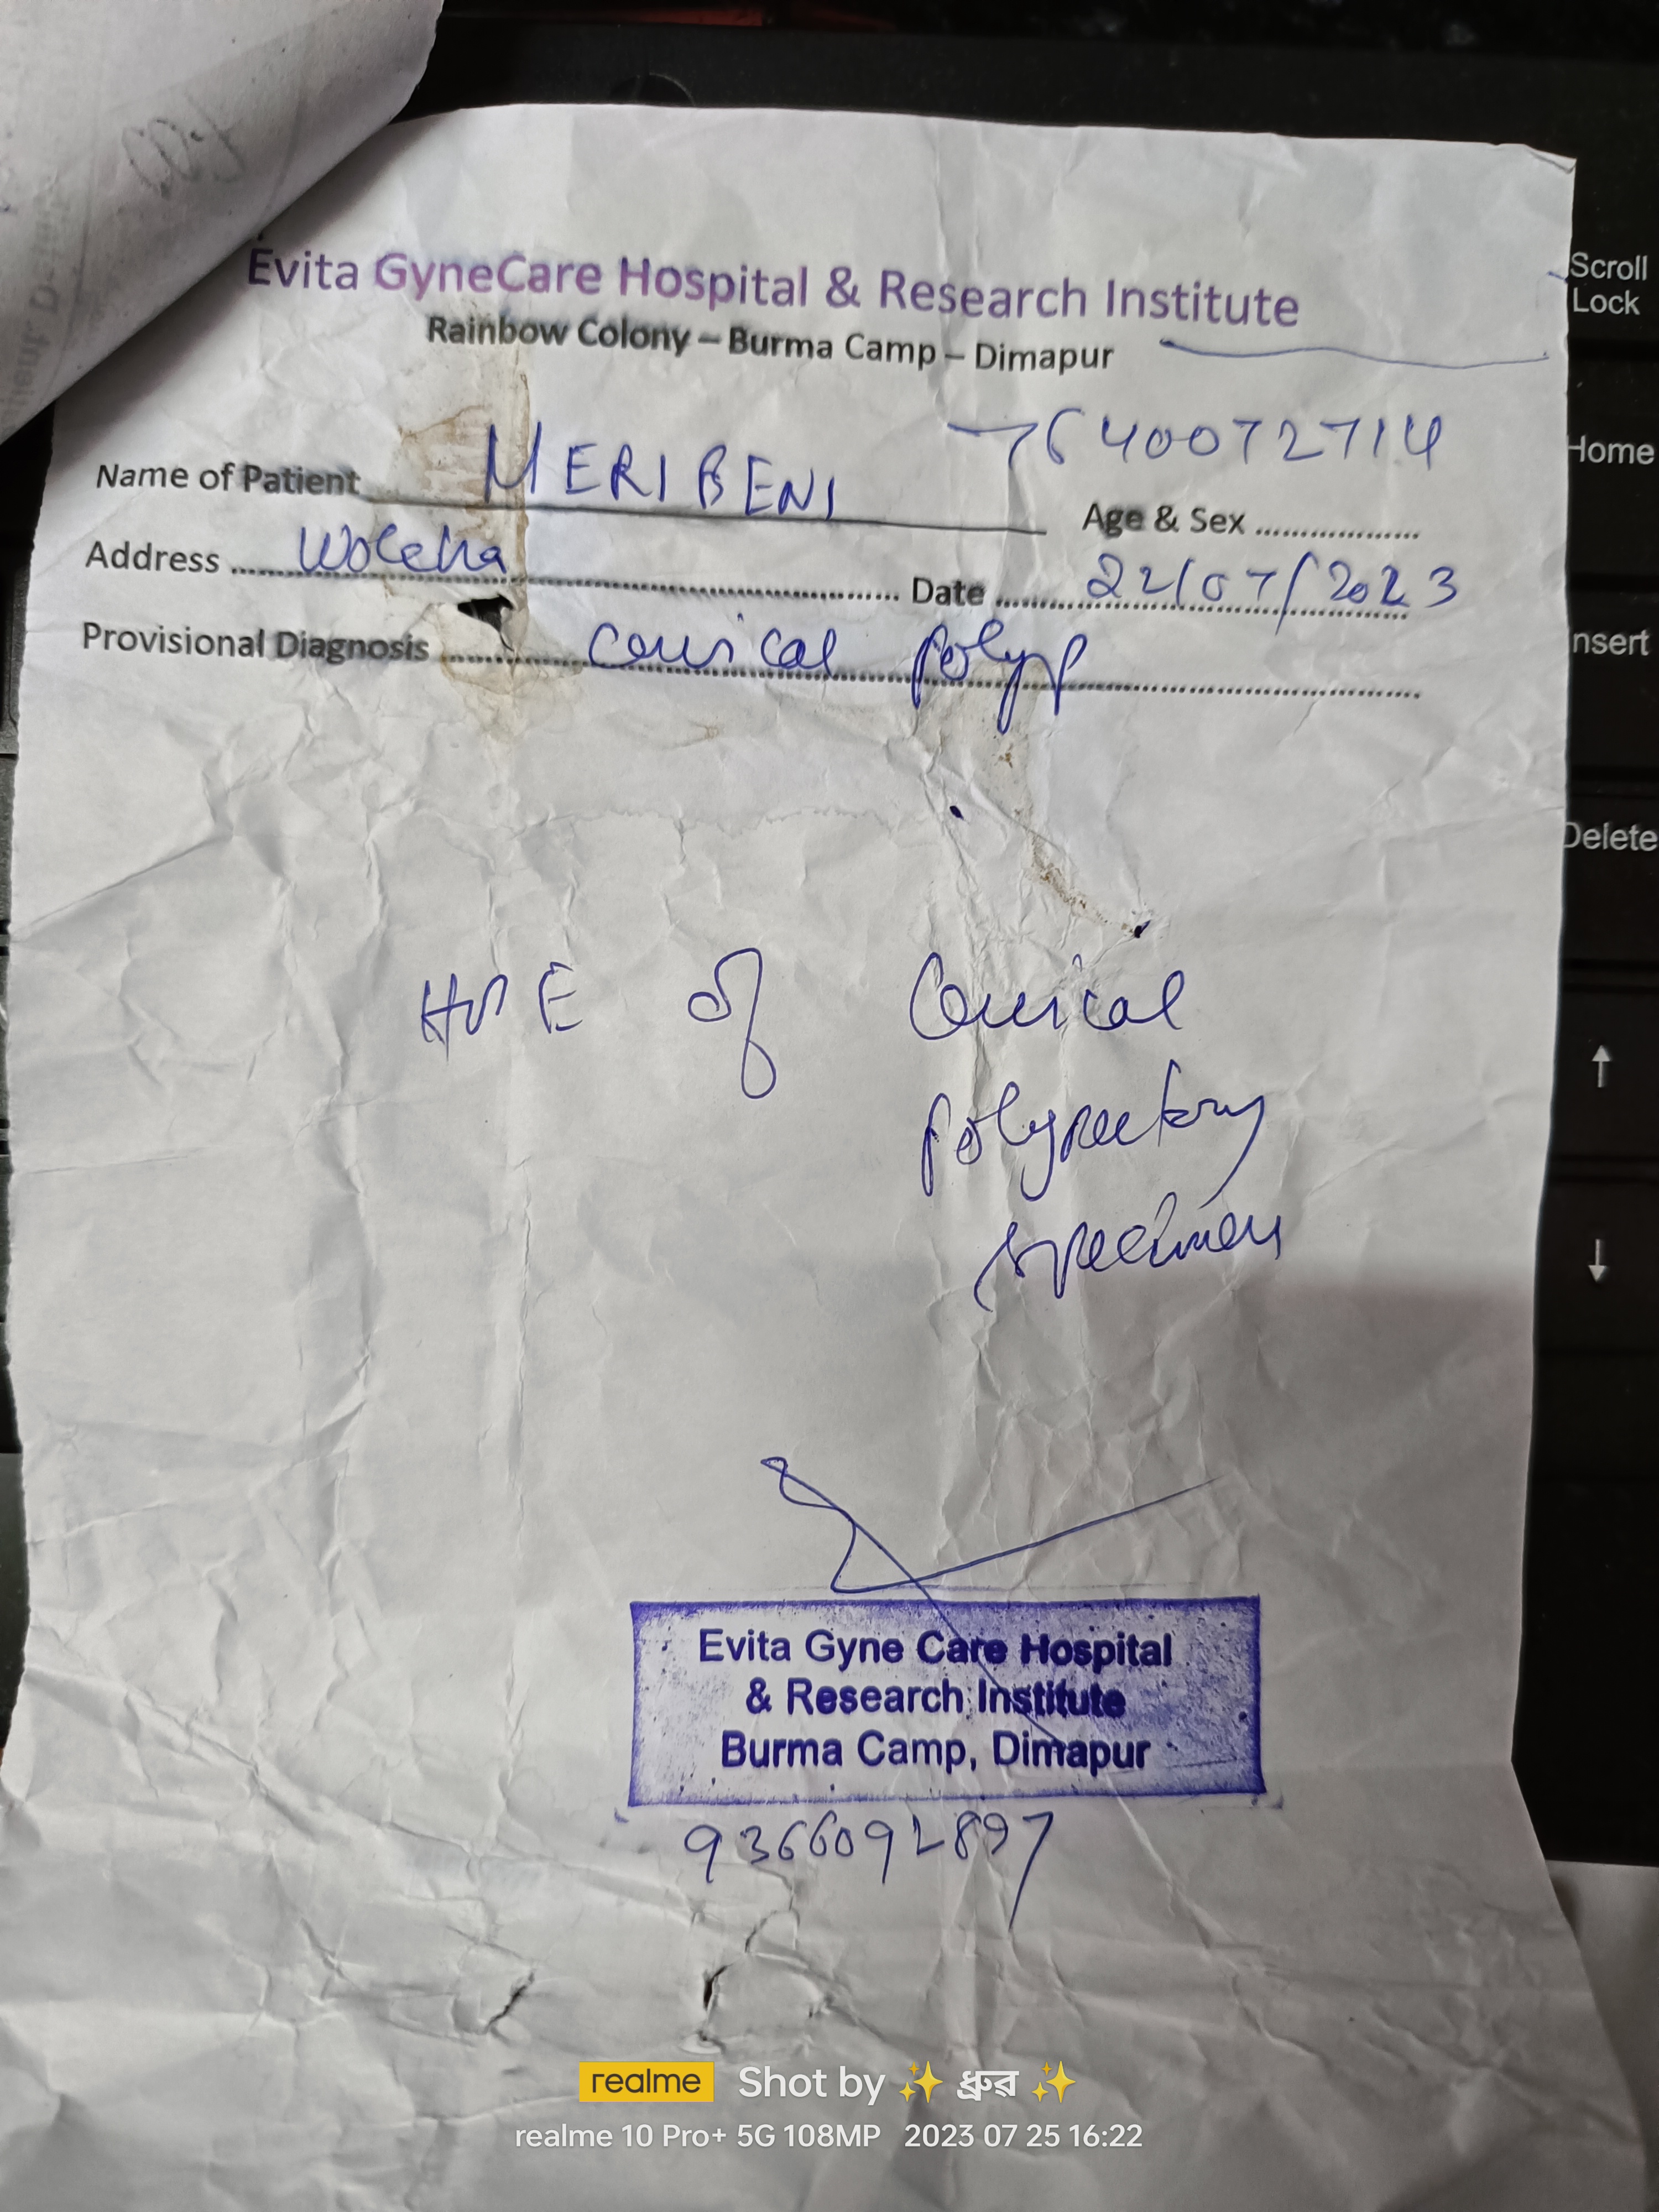 Evita GyneCare Hospital & Research Institute
Rainbow Colony – Burma Camp – Dimapur
7640072714
Name of Patient MERIBENI Age & Sex
Address Wokha Date 22/07/2023
Provisional Diagnosis Cervical polyp
HPE of Cervical
polypectomy
specimen
Evita Gyne Care Hospital
& Research Institute
Burma Camp, Dimapur
9366092897
Scroll
Lock
Home
Insert
Delete
↑
↓
realme Shot by ✨ ধ্রুৱ ✨
realme 10 Pro+ 5G 108MP 2023 07 25 16:22